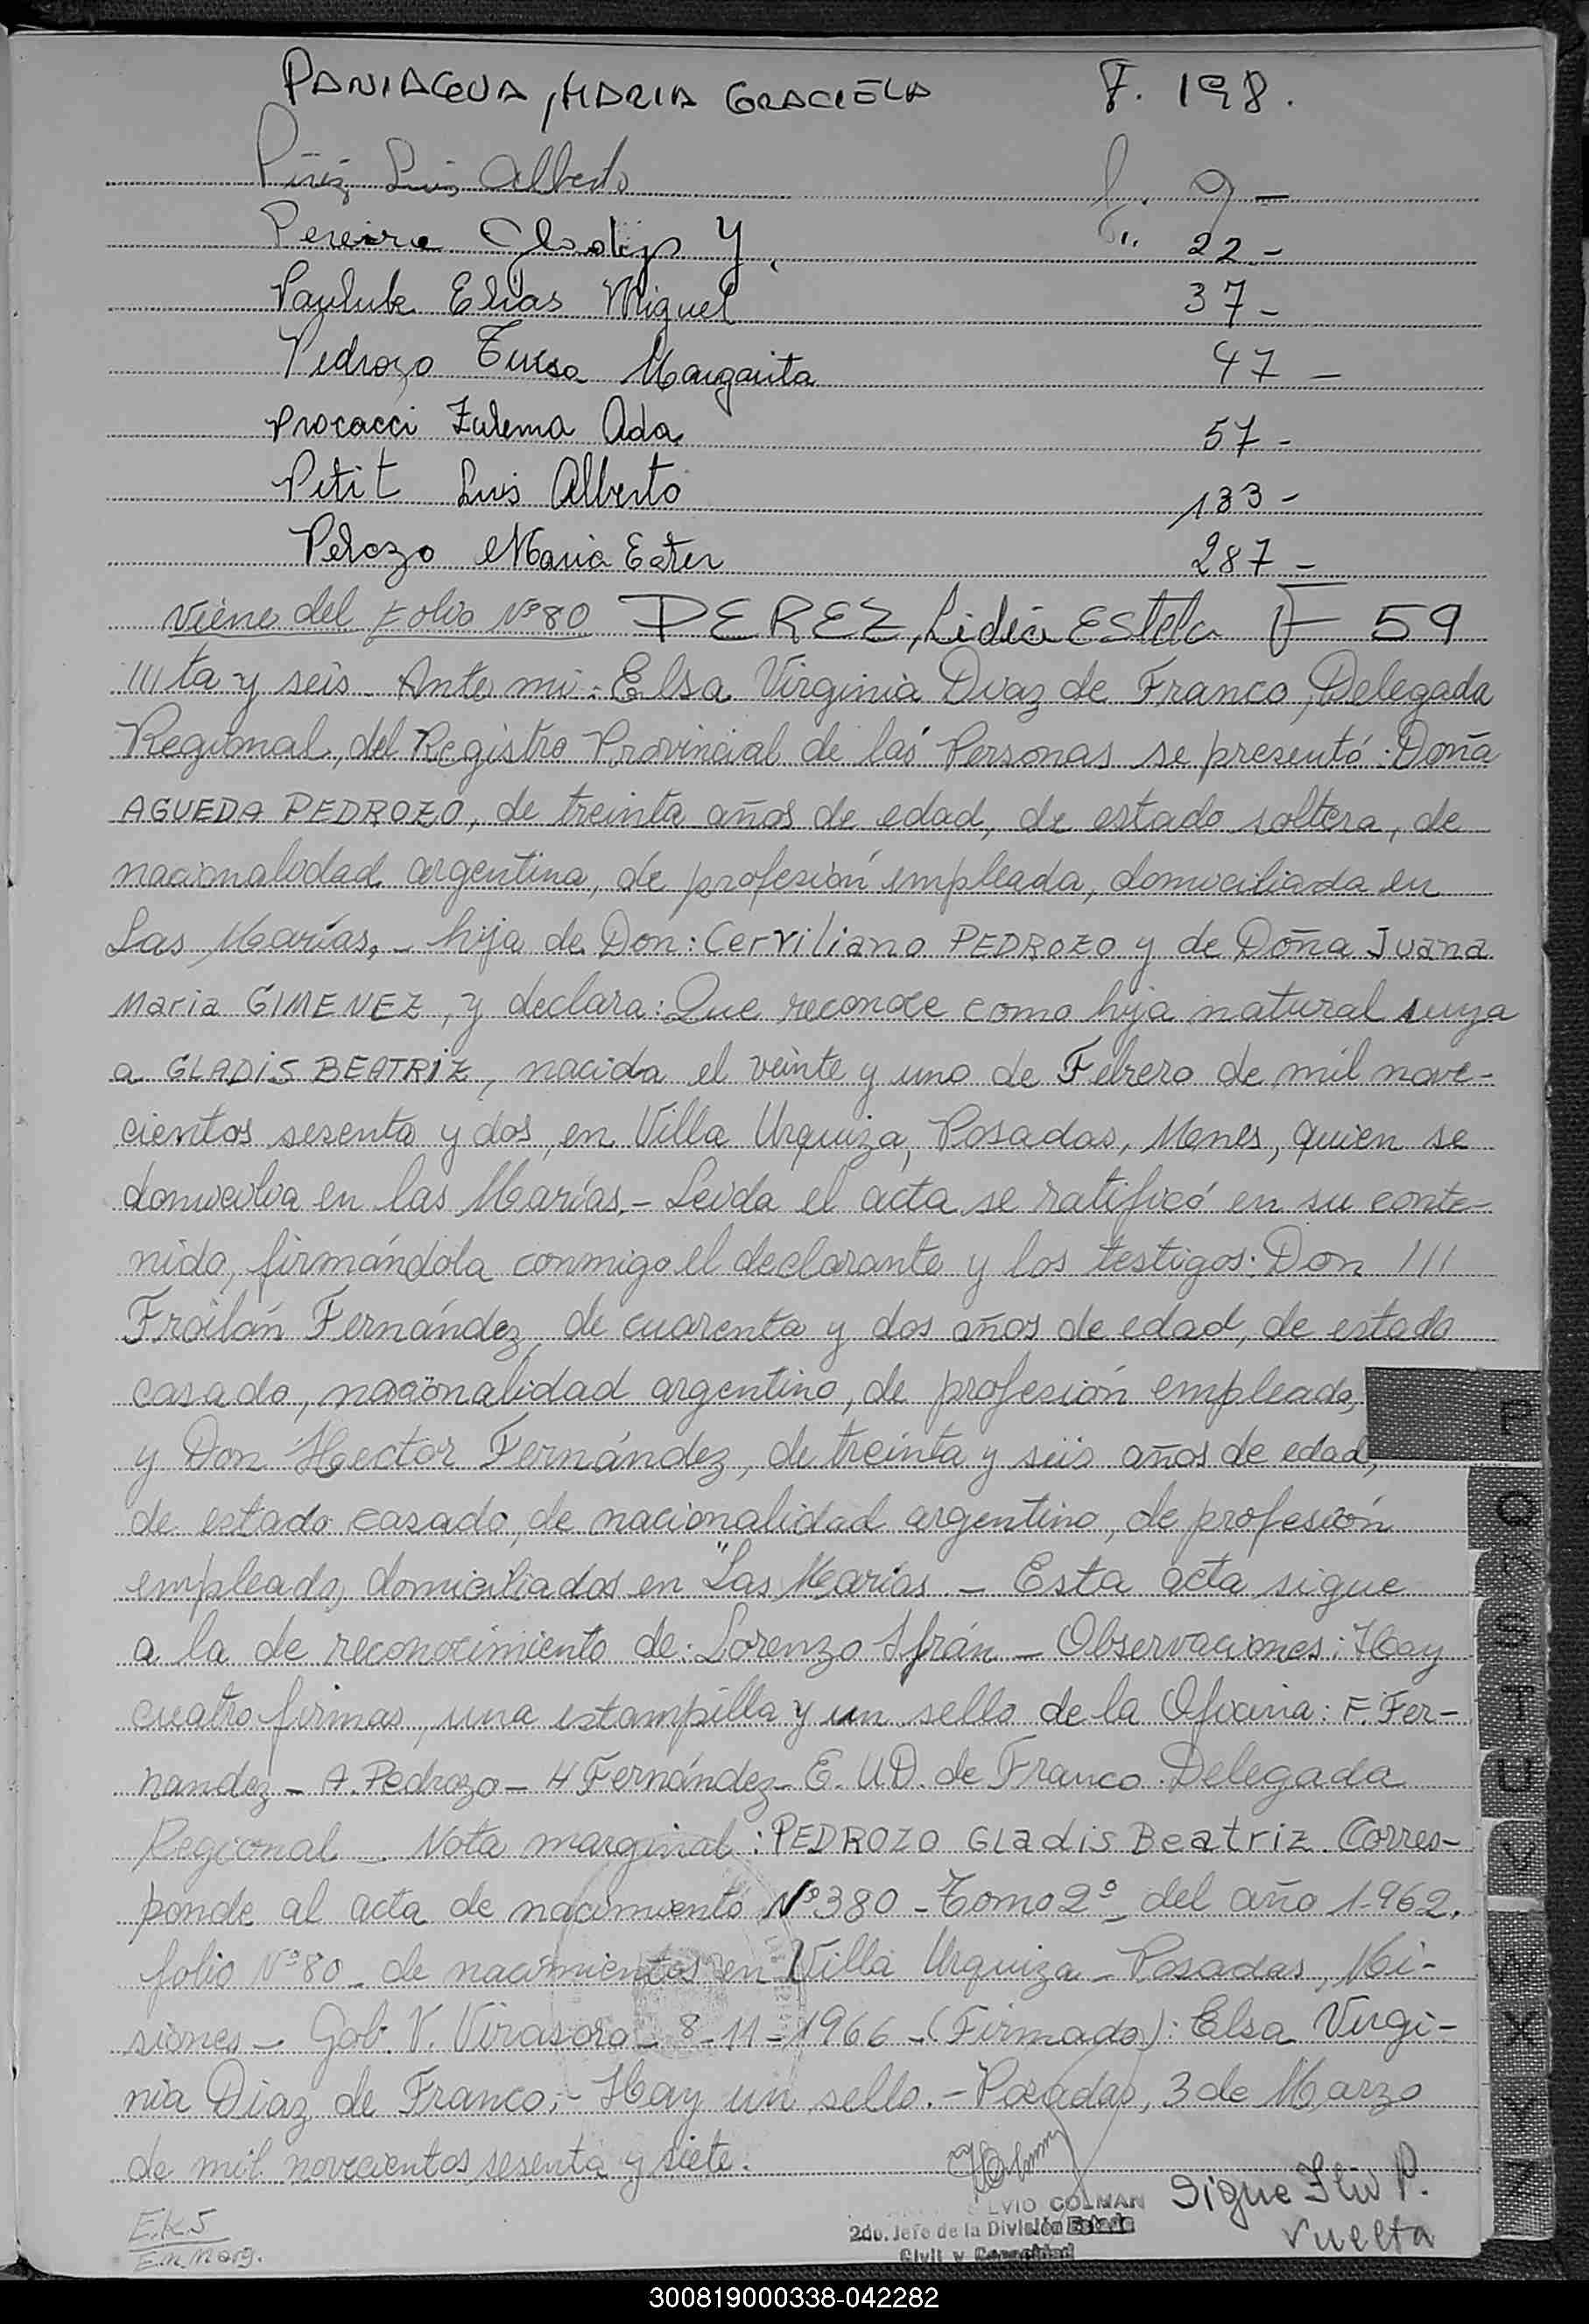 PANIAGUA, MARIA GRACIELA F. 198.
Piriz Luis Alberto f. 9 -
Pereira Gladys Y. " 22 -
Pauluk Elias Miguel 37 -
Pedrozo Teresa Margarita 47 -
Procacci Zulema Ada 57 -
Petit Luis Alberto 133 -
Pelozo Maria Ester 287 -
Viene del folio Nº 80 PEREZ, Lidia Estela F 59
///ta y seis. Ante mi: Elsa Virginia Diaz de Franco, Delegada
Regional, del Registro Provincial de las Personas se presentó: Doña
AGUEDA PEDROZO, de treinta años de edad, de estado soltera, de
nacionalidad argentina, de profesión empleada, domiciliada en
Las Marías, - hija de Don: Cerviliano PEDROZO y de Doña Juana
Maria GIMENEZ, y declara: Que reconoce como hija natural suya
a GLADIS BEATRIZ, nacida el veinte y uno de Febrero de mil nove-
cientos sesenta y dos, en Villa Urquiza, Posadas, Mones, quien se
domicilia en las Marías. - Leida el acta se ratificó en su conte-
nido, firmándola conmigo el declarante y los testigos: Don ///
Froilán Fernández, de cuarenta y dos años de edad, de estado
casado, nacionalidad argentino, de profesión empleado,
y Don Hector Fernández, de treinta y seis años de edad,
de estado casado, de nacionalidad argentino, de profesión
empleado, domiciliados en "Las Marias - Esta acta sigue
a la de reconocimiento de: Lorenzo Ifrán - Observaciones: Hay
cuatro firmas, una estampilla y un sello de la Oficina: F. Fer-
nandez - A. Pedrozo - H Fernández - E. U.D. de Franco. Delegada
Regional - Nota marginal: PEDROZO GLadis Beatriz. Corres-
ponde al acta de nacimiento Nº 380 - Tomo 2º - del año 1.962.
folio Nº 80 - de nacimientos en Villa Urquiza - Posadas, Mi-
siones - Gob. V. Virasoro - 8-11-1966 - (Firmado): Elsa Virgi-
nia Diaz de Franco. - Hay un sello. - Posadas, 3 de Marzo
de mil novecientos sesenta y siete.
LVIO COLMAN
2do. Jefe de la División Estado
Civil y Capacidad
Sigue Ind P.
Vuelta
E.K.J
En marg.
P
Q
R
S
T
U
V
W
X
Y
Z
300819000338-042282